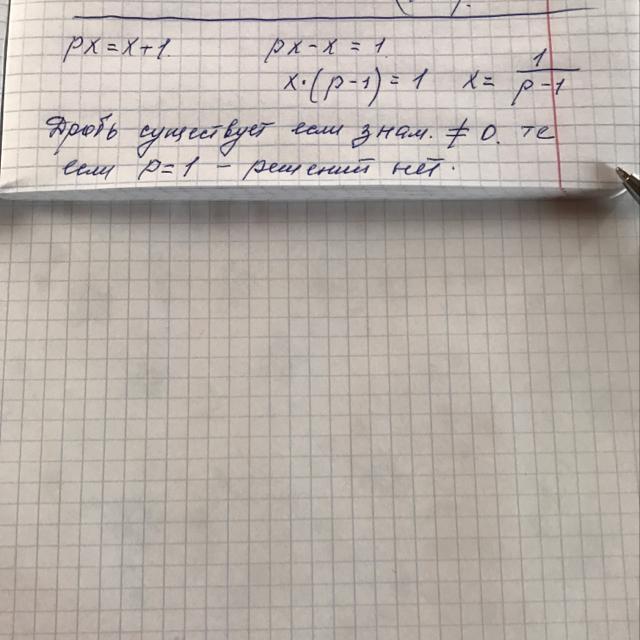 px = x+1. px-x = 1.
x·(p-1) = 1 x = 1/(p-1)
Дробь существует если знам. ≠ 0. те
если p=1 - решений нет.